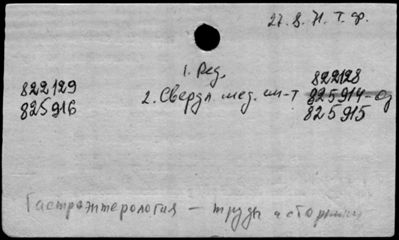 27. 8. Н. Т. ф.
1. Ред.
822128
822129
2. Свердл мед. ин-т 825914-
825916
825915
Гастроэнтерология — труды и сборники